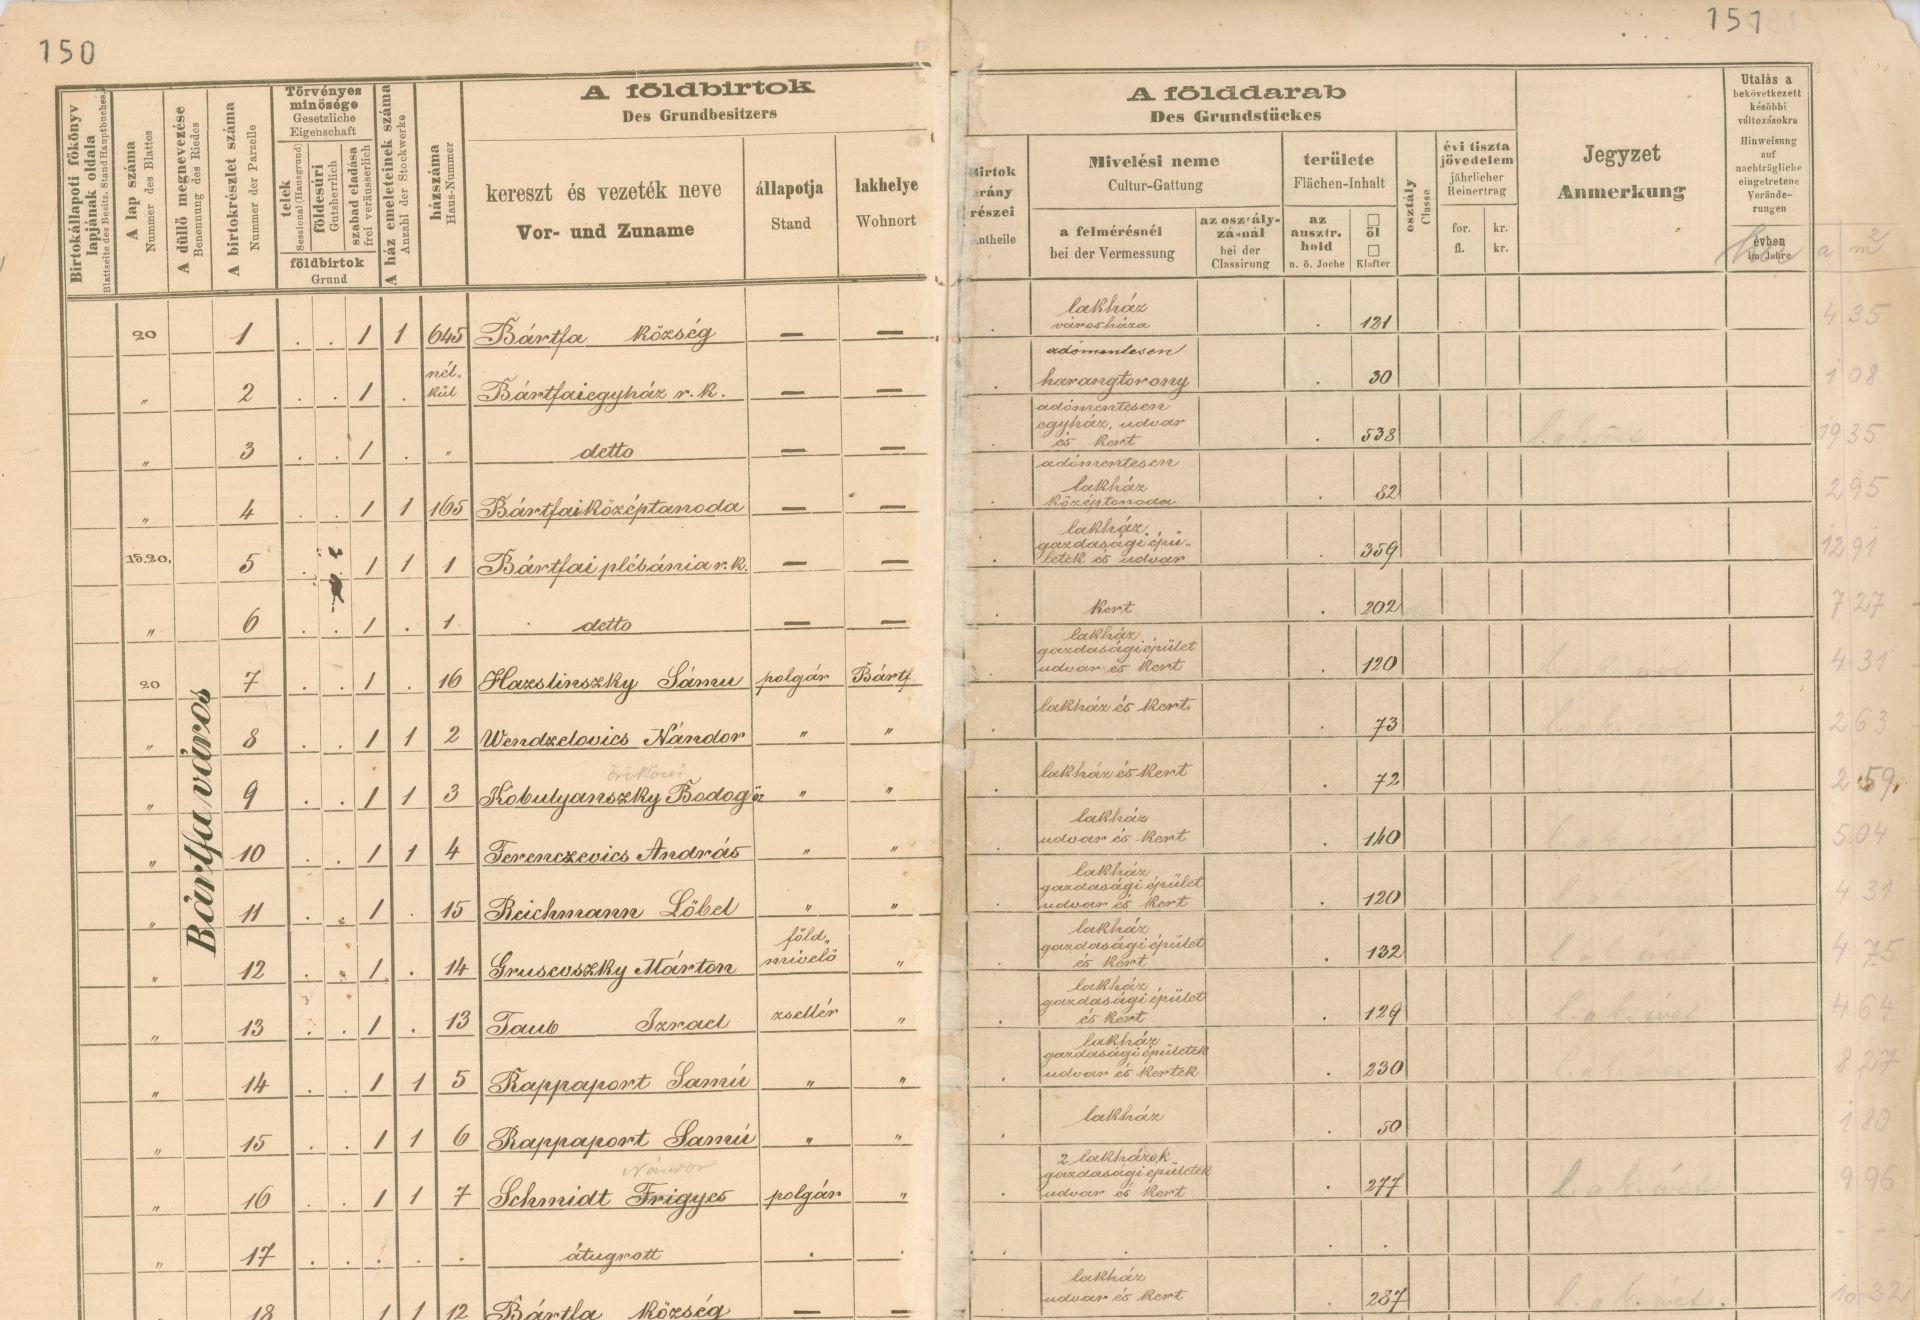 150
151
Birtokállapoti főkönyv lapjának oldala
Blattseite des Besitz. Stand Hauptbuches.
A lap száma
Nummer des Blattes
A düllő megnevezése
Benennung des Riedes
A birtokrészlet száma
Nummer der Parzelle
Törvényes minősége
Gesetzliche Eigenschaft
telek
Sessional (Hausgrund)
földesúri
Gutsherrlich
szabad eladása
frei veräusserlich
földbirtok
Grund
A ház emeleteinek száma
Anzahl der Stockwerke
házszáma
Haus-Nummer
A földbirtok
Des Grundbesitzers
kereszt és vezeték neve
Vor- und Zuname
állapotja
Stand
lakhelye
Wohnort
A földdarab
Des Grundstückes
Mivelési neme
Cultur-Gattung
a felmérésnél
bei der Vermessung
az osztály-
zásnál
bei der
Classirung
területe
Flächen-Inhalt
az
ausztr.
hold
n. ö. Joche
□
öl
□
Klafter
osztály
Classe
évi tiszta
jövedelem
jährlicher
Reinertrag
for. kr.
fl. kr.
Jegyzet
Anmerkung
Utalás a
bekövetkezett
későbbi
változásokra
Hinweisung
auf
nachträgliche
eingetretene
Verände-
rungen
évben
im Jahre
a m2
Bártfa város
20 1 . . 1 1 645 Bártfa község — — lakház városháza . 121 4 35
„ 2 . . 1 . nélkül Bártfai egyház r. k. — — adómentesen harangtorony . 30 1 08
„ 3 . . 1 . „ detto — — adómentesen egyház, udvar és kert . 538 19 35
„ 4 . . 1 1 165 Bártfai középtanoda — — adómentesen lakház középtanoda . 82 2 95
15.20. 5 . 1 1 1 Bártfai plébánia r. k. — — lakház gazdasági épü„ letek és udvar . 359 12 91
„ 6 . . 1 . 1 detto — — kert . 202 7 27
20 7 . . 1 . 16 Hazslinszky Sámu polgár Bártf. lakház gazdasági épület udvar és kert . 120 4 31
„ 8 . . 1 1 2 Wendzelovics Nándor „ „ lakház és kert . 73 2 63
„ 9 . . 1 1 3 Kobulyanszky Bodog „ „ lakház és kert . 72 2 59
„ 10 . . 1 1 4 Ferenczevics András „ „ lakház udvar és kert . 140 5 04
„ 11 . . 1 . 15 Reichmann Löbel „ „ lakház gazdasági épület udvar és kert . 120 4 31
„ 12 . . 1 . 14 Grusevszky Márton föld„ mivelő „ lakház gazdasági épület és kert . 132 4 75
„ 13 . . 1 . 13 Taub Izrael zsellér „ lakház gazdasági épület és kert . 129 4 64
„ 14 . . 1 1 5 Rappaport Samú „ „ lakház gazdasági épületek udvar és kertek . 230 8 27
„ 15 . . 1 1 6 Rappaport Samú „ „ lakház . 50 1 80
Nándor
„ 16 . . 1 1 7 Schmidt Frigyes polgár „ 2 lakházok gazdasági épületek udvar és kert . 277 9 96
„ 17 . . . . . átugrott . . . . - -
18 1 1 12 Bártfa község — — lakház udvar és kert . 287 10 32